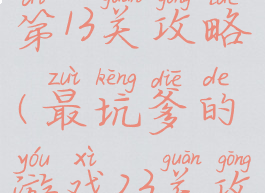 guān gōng
第13关攻略
zuì kēng diē de
(最坑爹的
yóu xì guān gōng
游戏23关攻